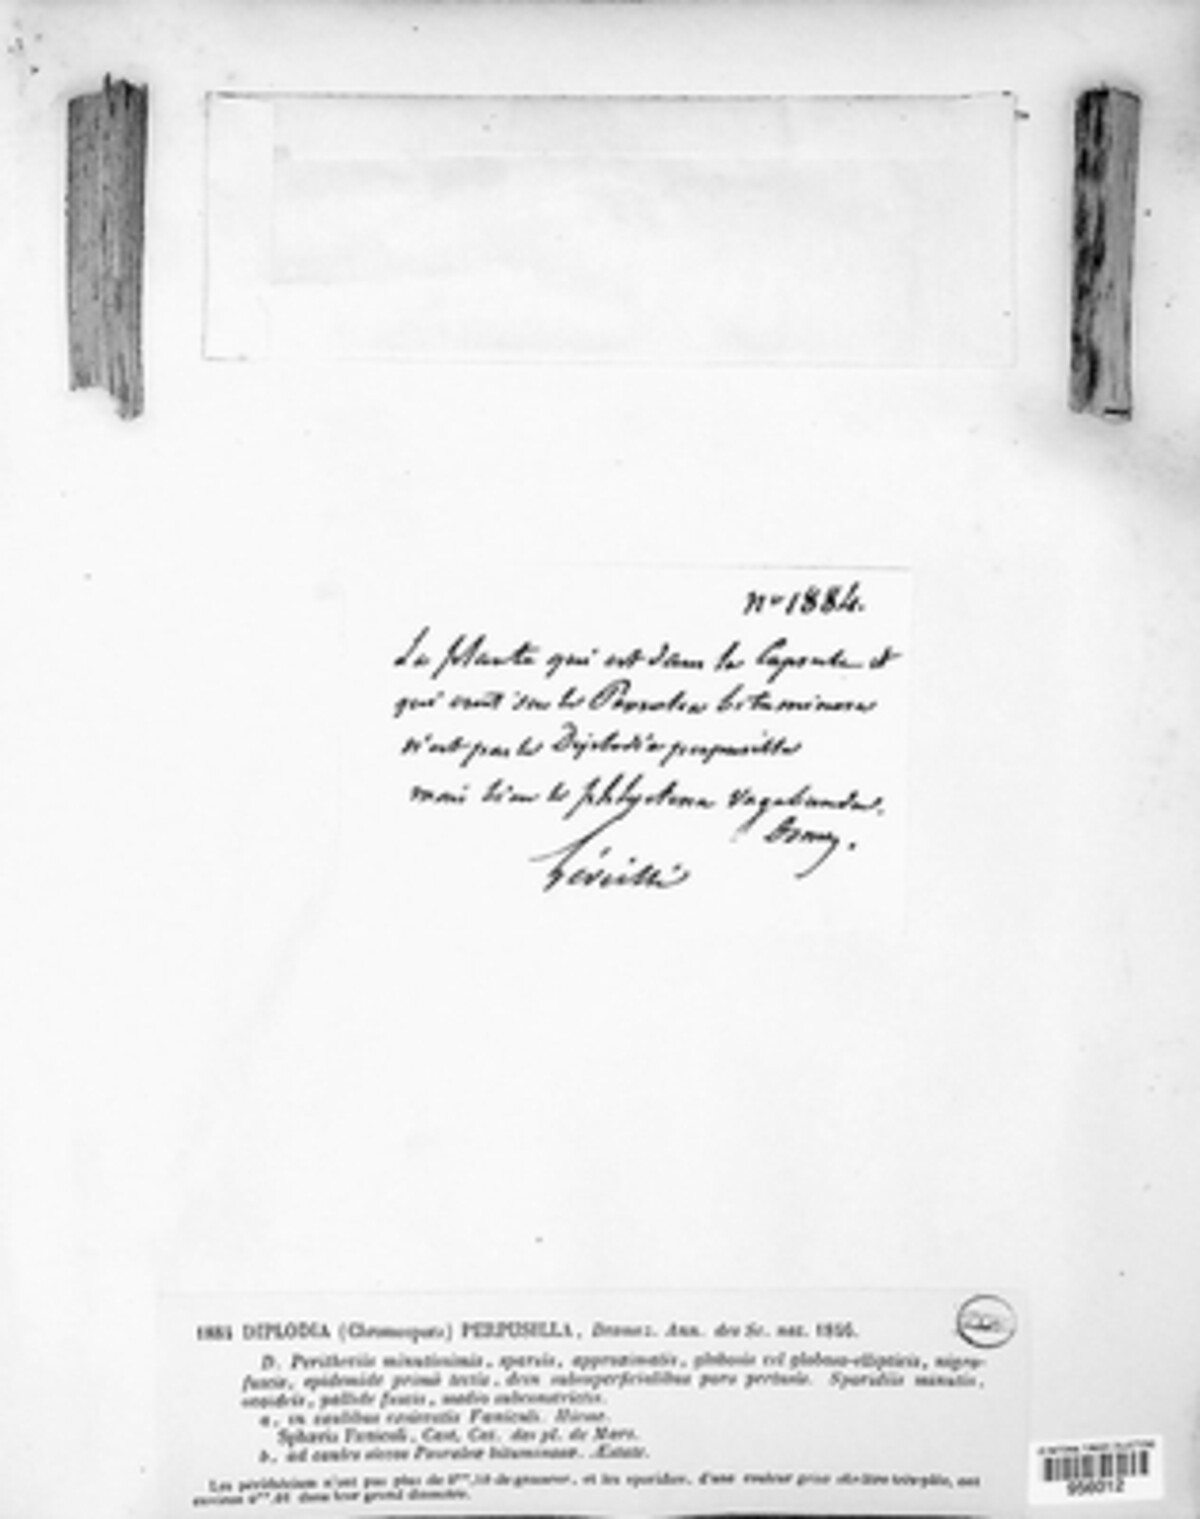 nº 1884.
La plante qui est dans la Capsule et
qui croît sur le Psoralea bituminosa
n'est pas le Diplodia perpusilla
mais bien le phlyctena vagabunda.
Desmaz.
Léveillé
1884 DIPLODIA (Chromospora) PERPUSILLA, Desmaz. Ann. des Sc. nat. 1846.
D. Peritheciis minutissimis, sparsis, approximatis, globosis vel globoso-ellipticis, nigro-
fuscis, epidermide primò tectis, dein subsuperficialibus poro pertusis. Sporidiis minutis,
ovoideis, pallide fuscis, medio subconstrictis.
a, in caulibus exsiccatis Fœniculi. Hieme.
Sphæria Fœniculi, Cast. Cat. des pl. de Mars.
b, ad caules siccos Psoraleæ bituminosæ. Æstate.
Les périthécium n'ont pas plus de de grosseur, et les sporides, d'une couleur grise olivâtre très-pâle, ont
environ dans leur grand diamètre.